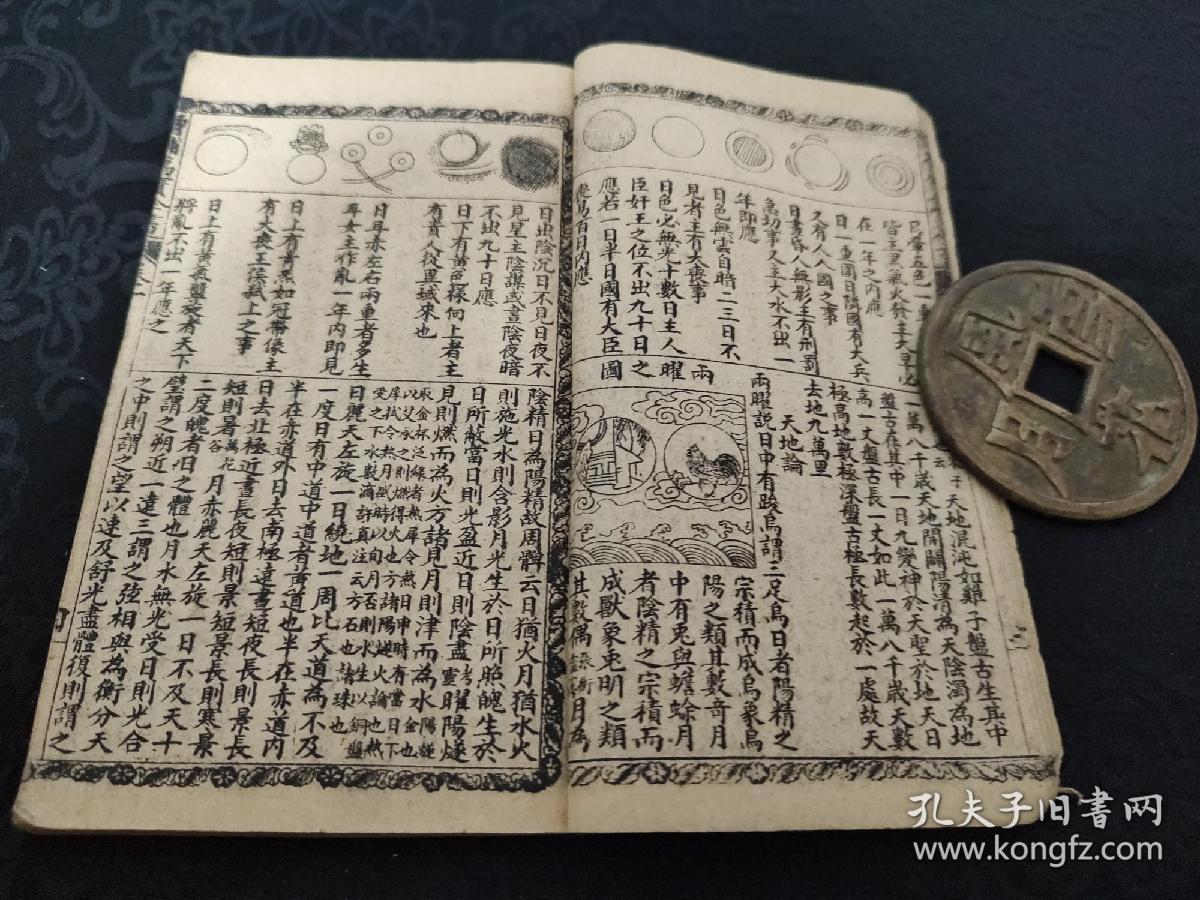 皆主黑氣火發主大旱必
在一年之內應
日一重圍日隣國有大兵
又有人入國之事
日晝昏人無影主有刑罰
急切事又主大水不出一
年即應
日色無雲自暗二三日不
見者主有大喪事
日色必無光十數日主人
臣奸王之位不出九十日之
應若一日半日國有大臣圖
變易百日內應
天地混沌如雞子盤古生其中
一萬八千歲天地開闢陽清為天陰濁為地
盤古在其中一日九變神於天聖於地天日
高一丈盤古長一丈如此一萬八千歲天數
極高地數極深盤古極長數起於一處故天
去地九萬里
天地論
兩曜
兩曜說日中有踆烏謂三足烏日者陽精之
宗積而成烏象烏
陽之類其數奇月
中有兎與蟾蜍月
者陰精之宗積而
成獸象兎明之類
其數偶張衡靈憲月為
日出陰沉日不見日夜不
見星主陰謀或晝陰夜暗
不出九十日應
日下有黃色樣向上者主
有貴人從異域來也
日月赤左右兩重者多生
耳女主作亂一年內即見
日上有青炁如冠帶像主
有大喪王侯弒上之事
日上有黃氣盤旋者天下
將亂不出一年應之
陰精日為陽精故周髀云日猶火月猶水火
則施光水則含影月光生於日所照魄生於
日所蔽當日則光盈近日則陰盡考靈曜陽燧
見則燃而為火方諸見月則津而為水
日麗天左旋一日繞地一周比天道為不及
一度日有中道中道者黃道也半在赤道內
半在赤道外日去南極遠晝短夜長則景長
日去北極近晝長夜短則景短景長則寒景
短則暑萬花谷月赤麗天左旋一日不及天十
二度魄者月之體也月水無光受日則光合
壁謂之朔近一遠三謂之弦相與為衡分天
之中則謂之望以速及舒光盡體復則謂之
孔夫子旧书网
www.kongfz.com